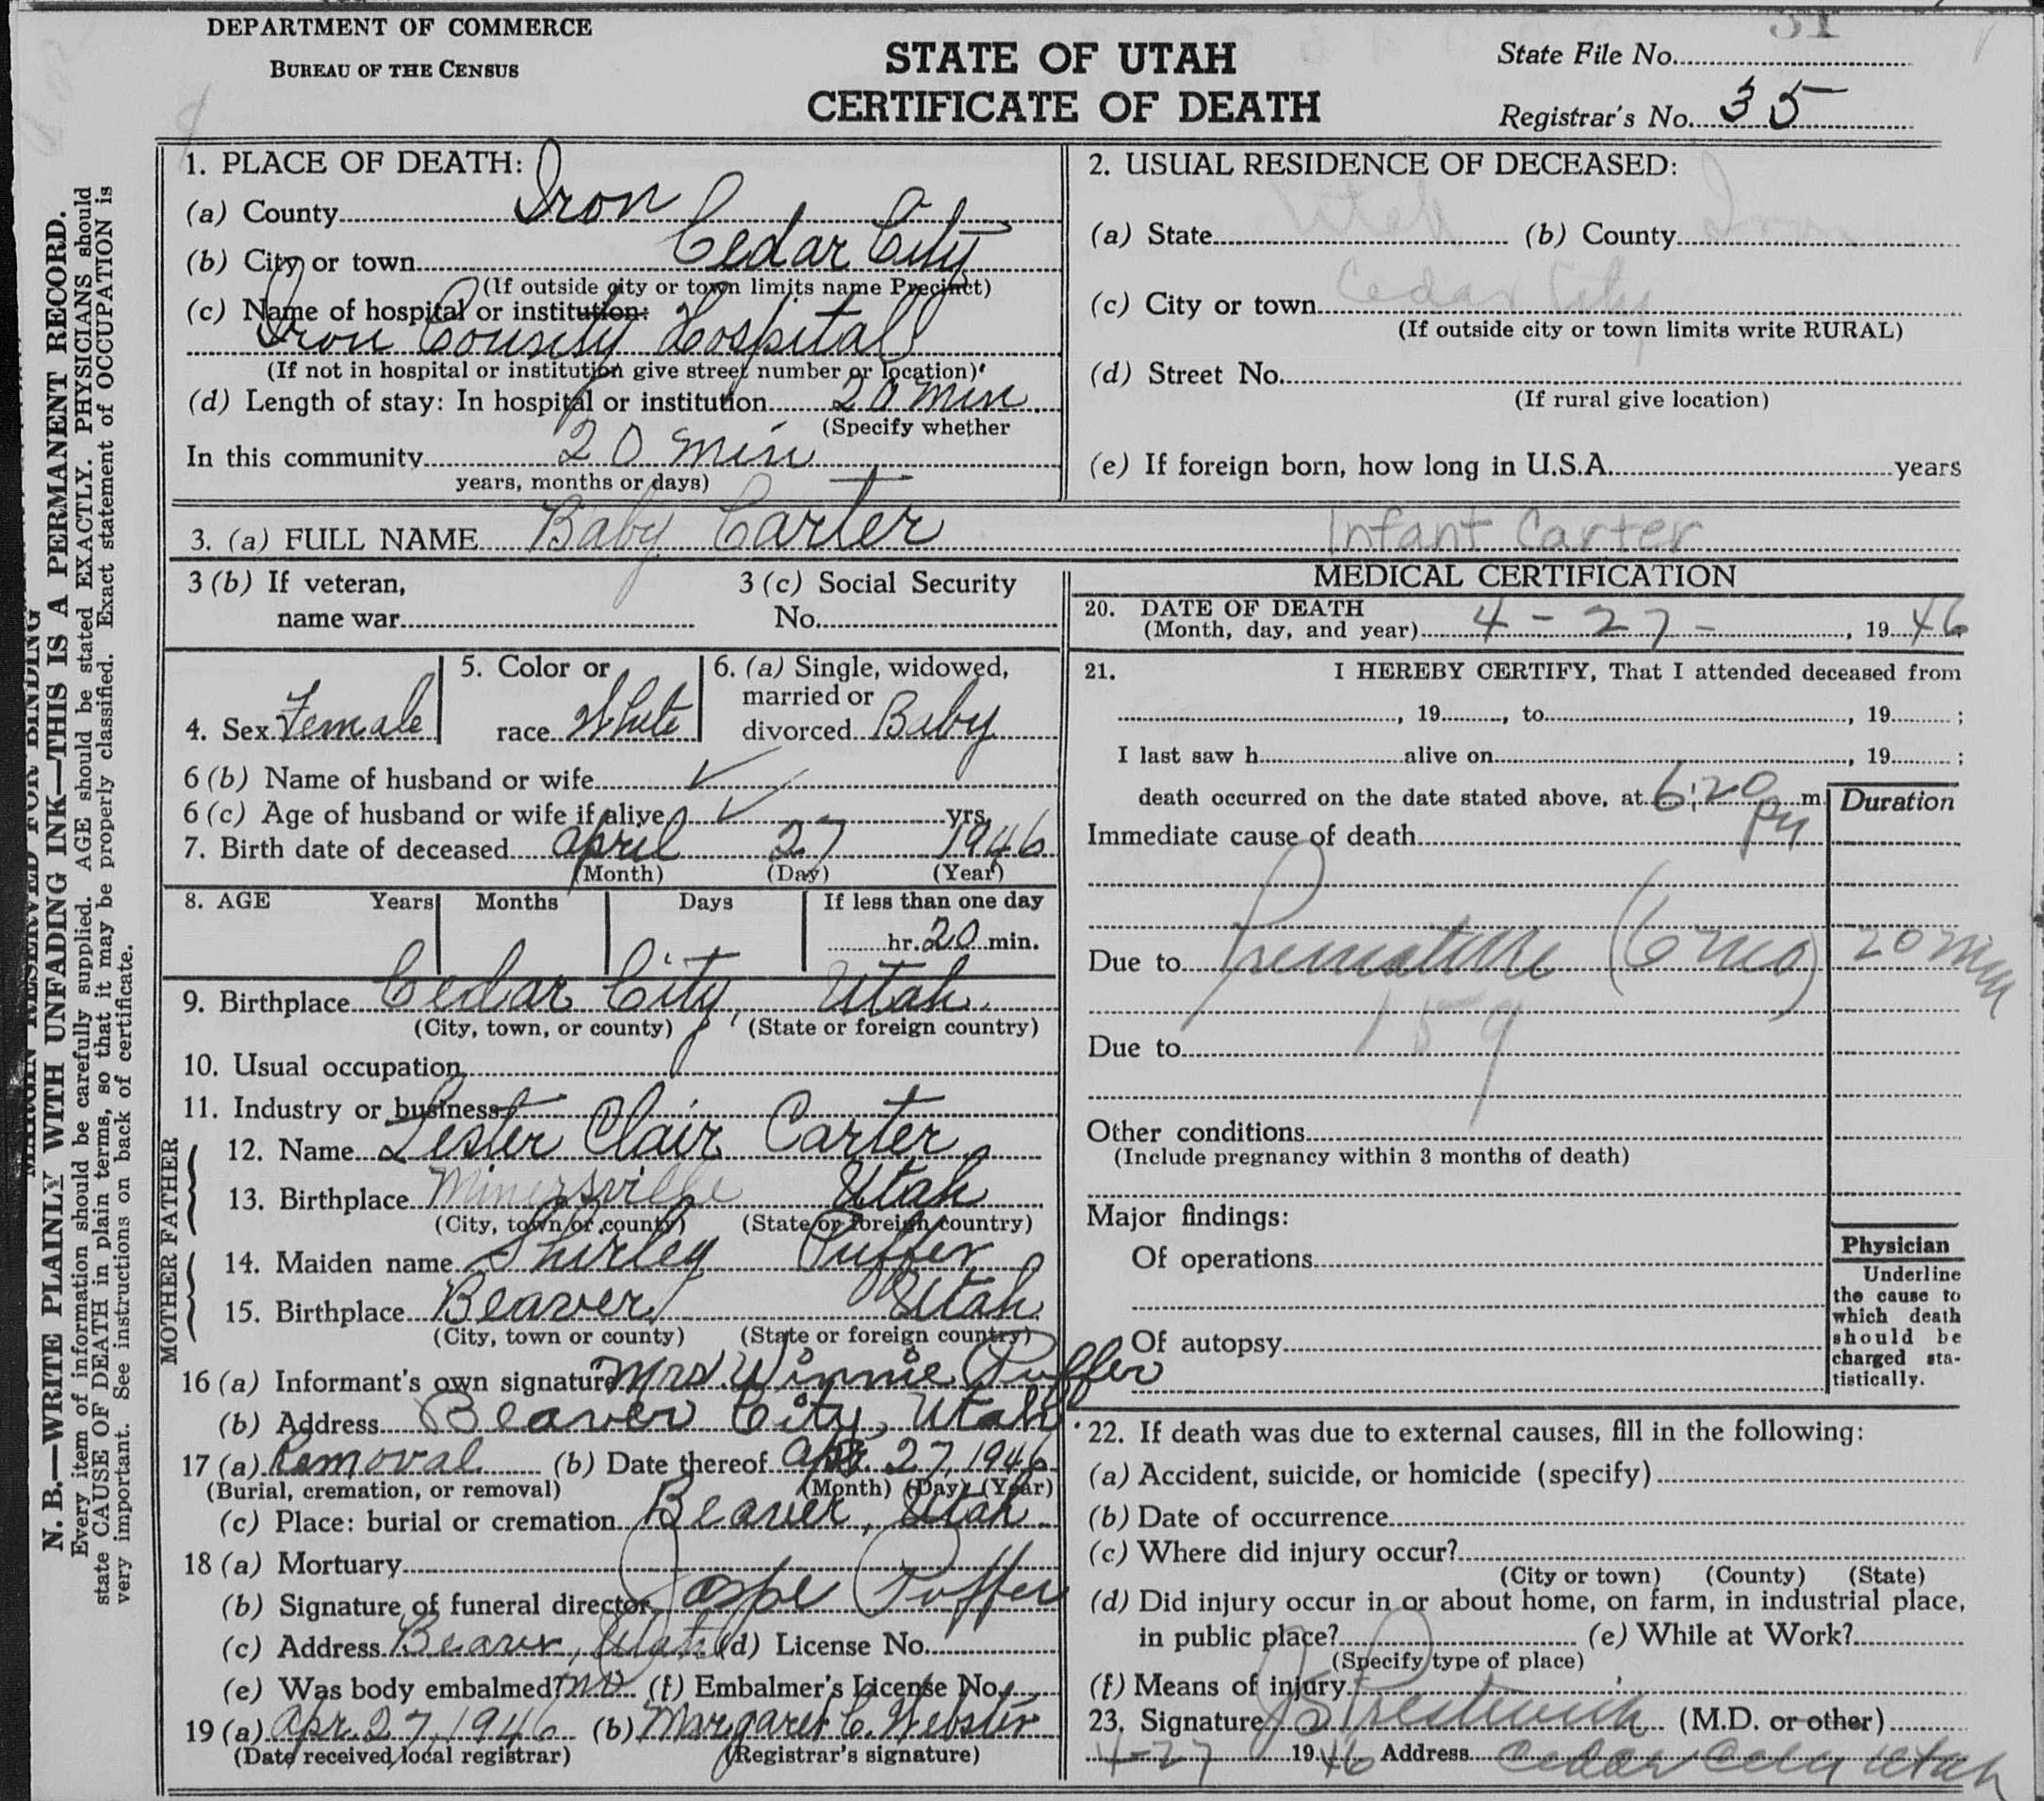 DEPARTMENT OF COMMERCE
BUREAU OF THE CENSUS
STATE OF UTAH
CERTIFICATE OF DEATH
State File No.
31
Registrar's No. 35
N. B.—WRITE PLAINLY WITH UNFADING INK—THIS IS A PERMANENT RECORD.
Every item of information should be carefully supplied. AGE should be stated EXACTLY. PHYSICIANS should
state CAUSE OF DEATH in plain terms, so that it may be properly classified. Exact statement of OCCUPATION is
very important. See instructions on back of certificate.
1. PLACE OF DEATH:
(a) County Iron
(b) City or town Cedar City
(If outside city or town limits name Precinct)
(c) Name of hospital or institution:
Iron County Hospital
(If not in hospital or institution give street number or location)
(d) Length of stay: In hospital or institution 20 min.
(Specify whether
In this community 20 min
years, months or days)
2. USUAL RESIDENCE OF DECEASED:
(a) State Utah (b) County Iron
(c) City or town Cedar City
(If outside city or town limits write RURAL)
(d) Street No.
(If rural give location)
(e) If foreign born, how long in U.S.A. years
3. (a) FULL NAME Baby Carter Infant Carter
3 (b) If veteran,
name war
3 (c) Social Security
No.
4. Sex Female
5. Color or
race White
6. (a) Single, widowed,
married or
divorced Baby
6 (b) Name of husband or wife
6 (c) Age of husband or wife if alive yrs.
7. Birth date of deceased April 27 1946
(Month) (Day) (Year)
8. AGE Years Months Days If less than one day
hr. 20 min.
9. Birthplace Cedar City, Utah
(City, town, or county) (State or foreign country)
10. Usual occupation
11. Industry or business
FATHER
12. Name Lester Clair Carter
13. Birthplace Minersville Utah
(City, town or county) (State or foreign country)
MOTHER
14. Maiden name Shirley Puffer
15. Birthplace Beaver, Utah
(City, town or county) (State or foreign country)
16 (a) Informant's own signature Mrs Winnie Puffer
(b) Address Beaver City, Utah
17 (a) Removal (b) Date thereof Apr. 27, 1946
(Burial, cremation, or removal) (Month) (Day) (Year)
(c) Place: burial or cremation Beaver, Utah.
18 (a) Mortuary
(b) Signature of funeral director Puffer
(c) Address Beaver, Utah (d) License No.
(e) Was body embalmed? no (f) Embalmer's License No.
19 (a) Apr. 27, 1946 (b) Margaret C. Webster
(Date received local registrar) (Registrar's signature)
MEDICAL CERTIFICATION
20. DATE OF DEATH
(Month, day, and year) 4 - 27 - , 19 46
21. I HEREBY CERTIFY, That I attended deceased from
, 19 , to , 19 ;
I last saw h alive on , 19 ;
death occurred on the date stated above, at 6:20 PM m.
Duration
Immediate cause of death
Due to Premature (6 mo) 20 min
159
Due to
Other conditions
(Include pregnancy within 3 months of death)
Major findings:
Of operations
Of autopsy
Physician
Underline
the cause to
which death
should be
charged sta-
tistically.
22. If death was due to external causes, fill in the following:
(a) Accident, suicide, or homicide (specify)
(b) Date of occurrence
(c) Where did injury occur?
(City or town) (County) (State)
(d) Did injury occur in or about home, on farm, in industrial place,
in public place? (e) While at Work?
(Specify type of place)
(f) Means of injury
23. Signature Prestwich (M.D. or other)
4-27 19 46 Address Cedar City Utah